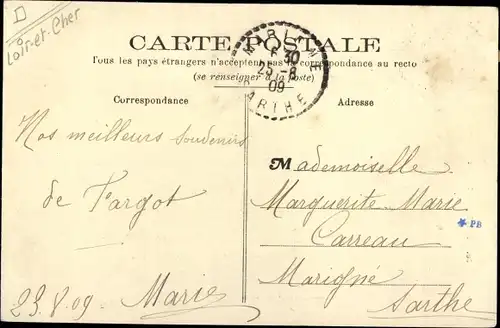 Loir-et-Cher
CARTE POSTALE
Tous les pays étrangers n'acceptent pas la correspondance au recto
(se renseigner à la poste)
25-8
09
SARTHE
Correspondance
Adresse
Nos meilleurs souvenirs
de Fargot
23.8.09 Marie
Mademoiselle
Marguerite Marie
Carreau
Marigné
Sarthe
PB